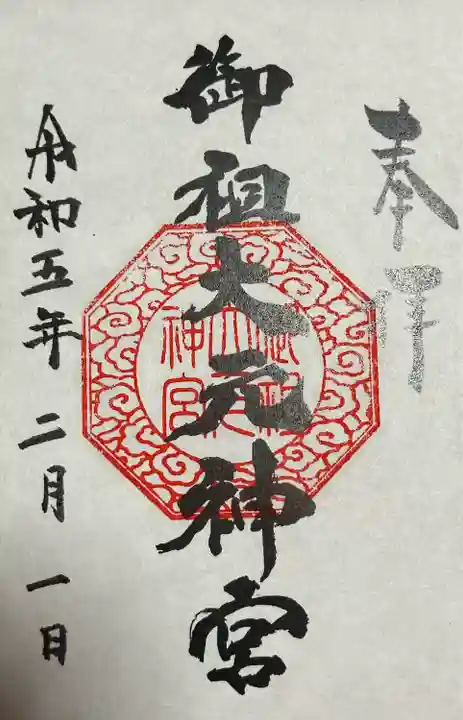 奉拝
御祖大元神宮
御祖大元神宮
令和五年 二月 一日